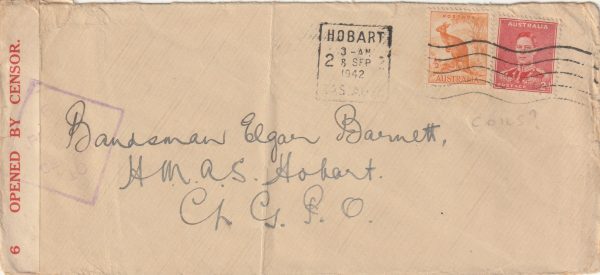 6 OPENED BY CENSOR.
HOBART
3-AM
28 SEP
1942
POSTAGE
AUSTRALIA
AUSTRALIA
POSTAGE
COILS?
Bandsman Elgar Barnett,
H.M.A.S. Hobart.
C/- G. P. O.